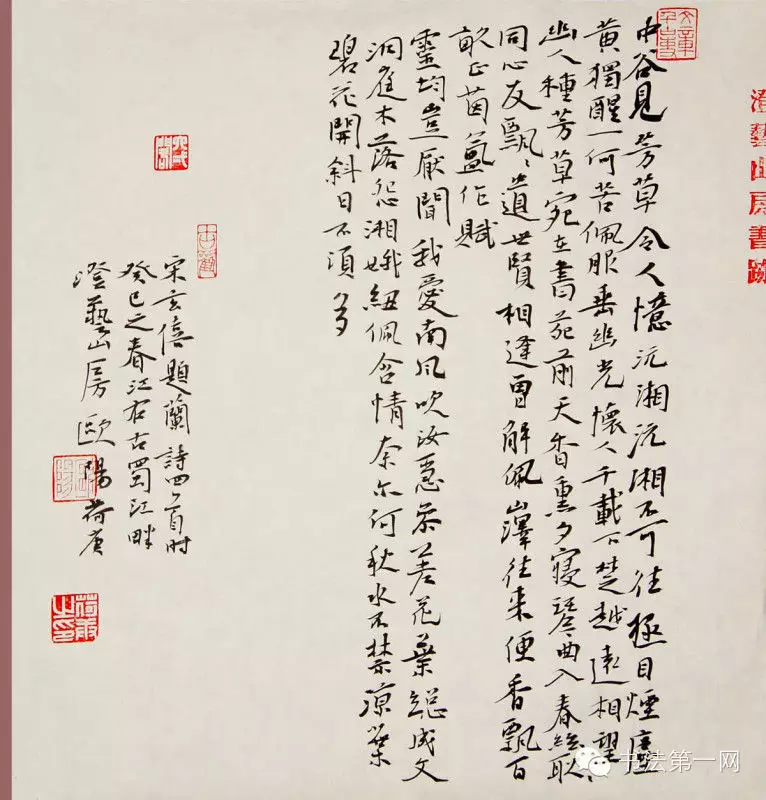 文章千古事
澄藝山房書跡
中谷見芳草令人憶沅湘沅湘不可往極目煙塵
黃獨醒一何苦佩服垂幽光懷人千載下楚越遠相望、
幽人種芳草宛在書苑前天香熏夕寢琴曲入春絃耿
同心友飄、道世賢相逢曾解佩山澤往來便香飄百
畝正茵氳作賦
靈均豈厭聞我愛南風吹汝急參差花葉總成文
洞庭木落怨湘娥紐佩含情奈尔何秋水不禁凉葉
碧花開斜日不須多
宋玄僖題蘭詩四首時
癸巳之春江右古蜀江畔
澄藝山房歐陽荷庚
歐陽
荷庚之印
书法第一网